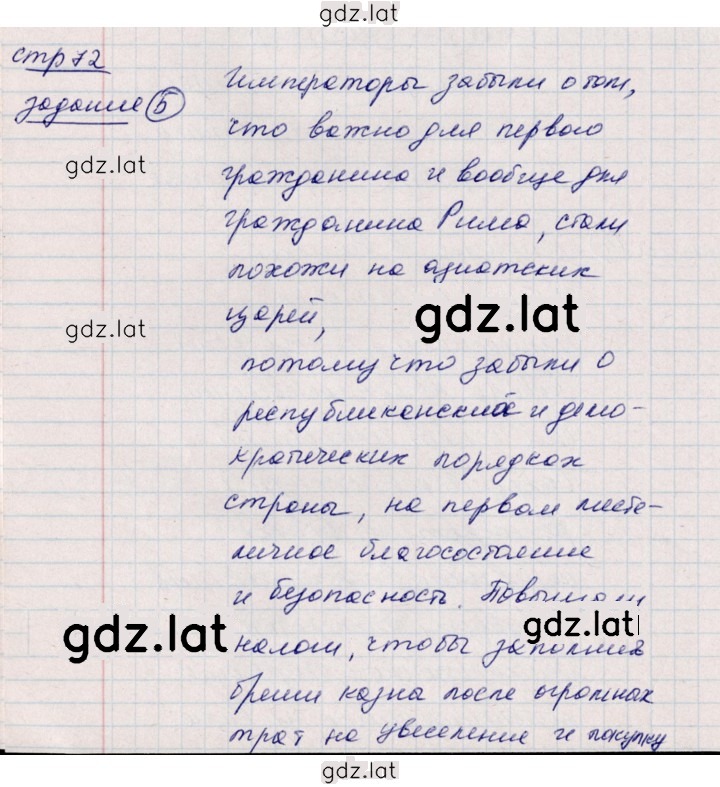 gdz.lat
стр 72
задание 5
Императоры забыли о том,
что важно для первого
gdz.lat
гражданина и вообще для
гражданина Рима, стали
похожи на азиатских
gdz.lat
царей,
gdz.lat
потому что забыли о
республиканский и демо-
кратических порядках
страны, на первом месте -
личное благосостояние
и безопасность. Повышали
gdz.lat
gdz.lat
налоги, чтобы заполнить
бреши казна после огромных
трат на увеселение и покупку
gdz.lat